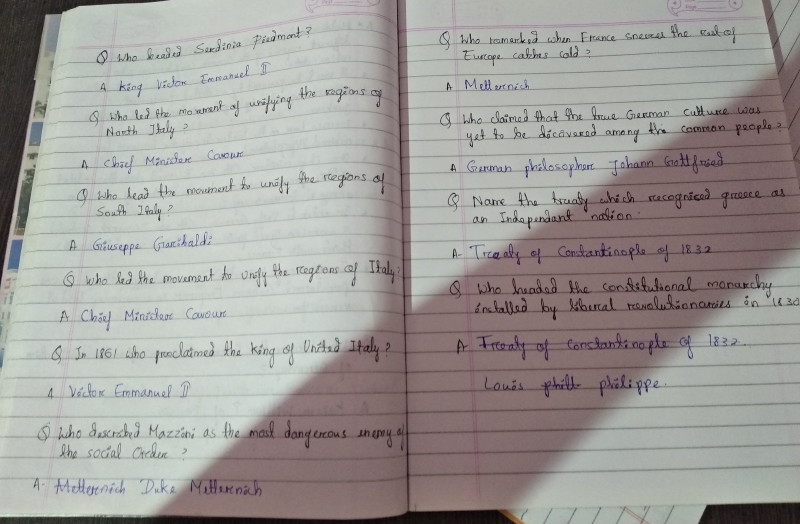 Q Who headed Sardinia Piedmont?
A King Victor Emmanuel II
Q Who led the movement of unifying the regions of
North Italy?
A Chief Minister Cavour
Q Who lead the movement to unify the regions of
South Italy?
A Giuseppe Garibaldi
Q Who led the movement to unify the regions of Italy?
A Chief Minister Cavour
Q In 1861 who proclaimed the king of United Italy?
A Victor Emmanuel II
Q Who described Mazzini as the most dangerous enemy of
the social Order ?
A- Metternich Duke Metternich
Q Who remarked when France sneezes the rest of
Europe catches cold?
A Metternich
Q Who claimed that the true German culture was
yet to be discovered among the common people?
A German philosopher Johann Gottfried
Q Name the treaty which recognised greece as
an Independant nation.
A- Treaty of Constantinople of 1832
Q Who headed the constitutional monarchy
installed by liberal revolutionaries in 1830
A- Treaty of Constantinople of 1832.
Louis philippe.